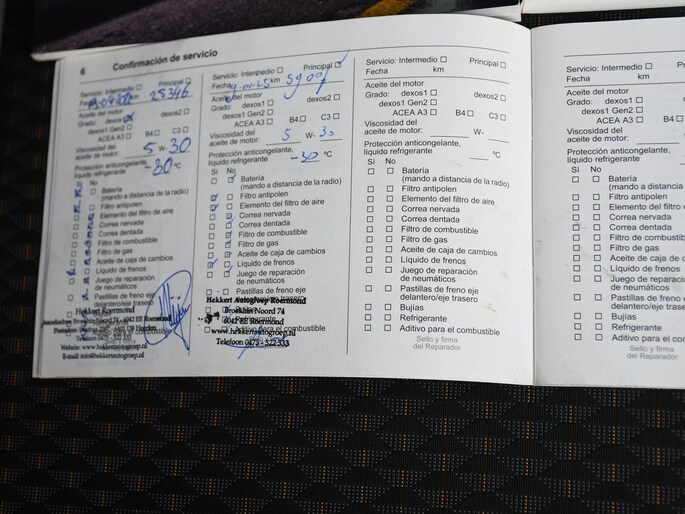 6 Confirmación de servicio
Servicio: Intermedio Principal
Fecha km 25346
Aceite del motor
Grado: dexos1 dexos2
dexos1 Gen2
ACEA A3 B4 C3
Viscosidad del
aceite de motor: 5 W- 30
Protección anticongelante,
líquido refrigerante -30 °C
Sí No
Batería
(mando a distancia de la radio)
Filtro antipolen
Elemento del filtro de aire
Correa nervada
Correa dentada
Filtro de combustible
Filtro de gas
Aceite de caja de cambios
Líquido de frenos
Juego de reparación
de neumáticos
Pastillas de freno eje
delantero/eje trasero
Hekkert Roermond
Website: www.hekkertautogroep.nl
E-mail: info@hekkertautogroep.nl
Servicio: Intermedio Principal
Fecha km
Aceite del motor
Grado: dexos1 dexos2
dexos1 Gen2
ACEA A3 B4 C3
Viscosidad del
aceite de motor: 5 W- 30
Protección anticongelante,
líquido refrigerante -30 °C
Sí No
Batería
(mando a distancia de la radio)
Filtro antipolen
Elemento del filtro de aire
Correa nervada
Correa dentada
Filtro de combustible
Filtro de gas
Aceite de caja de cambios
Líquido de frenos
Juego de reparación
de neumáticos
Hekkert Autogroep Roermond
Broekhin Noord 74
6042 EE Roermond
www.hekkertautogroep.nl
Telefoon 0475 - 322 333
Servicio: Intermedio Principal
Fecha km
Aceite del motor
Grado: dexos1 dexos2
dexos1 Gen2
ACEA A3 B4 C3
Viscosidad del
aceite de motor: W-
Protección anticongelante,
líquido refrigerante °C
Sí No
Batería
(mando a distancia de la radio)
Filtro antipolen
Elemento del filtro de aire
Correa nervada
Correa dentada
Filtro de combustible
Filtro de gas
Aceite de caja de cambios
Líquido de frenos
Juego de reparación
de neumáticos
Pastillas de freno eje
delantero/eje trasero
Bujías
Refrigerante
Aditivo para el combustible
Sello y firma
del Reparador
Servicio: Intermedio Principal
Fecha km
Aceite del motor
Grado: dexos1
dexos1 Gen2
ACEA A3 B4
Viscosidad del
aceite de motor:
Protección anticongelante,
líquido refrigerante
Sí No
Batería
(mando a distancia de
Filtro antipolen
Elemento del filtro de
Correa nervada
Correa dentada
Filtro de combustible
Filtro de gas
Aceite de caja de cam
Líquido de frenos
Juego de reparación
de neumáticos
Pastillas de freno eje
delantero/eje trasero
Bujías
Refrigerante
Aditivo para el com
Sello y firma
del Reparador